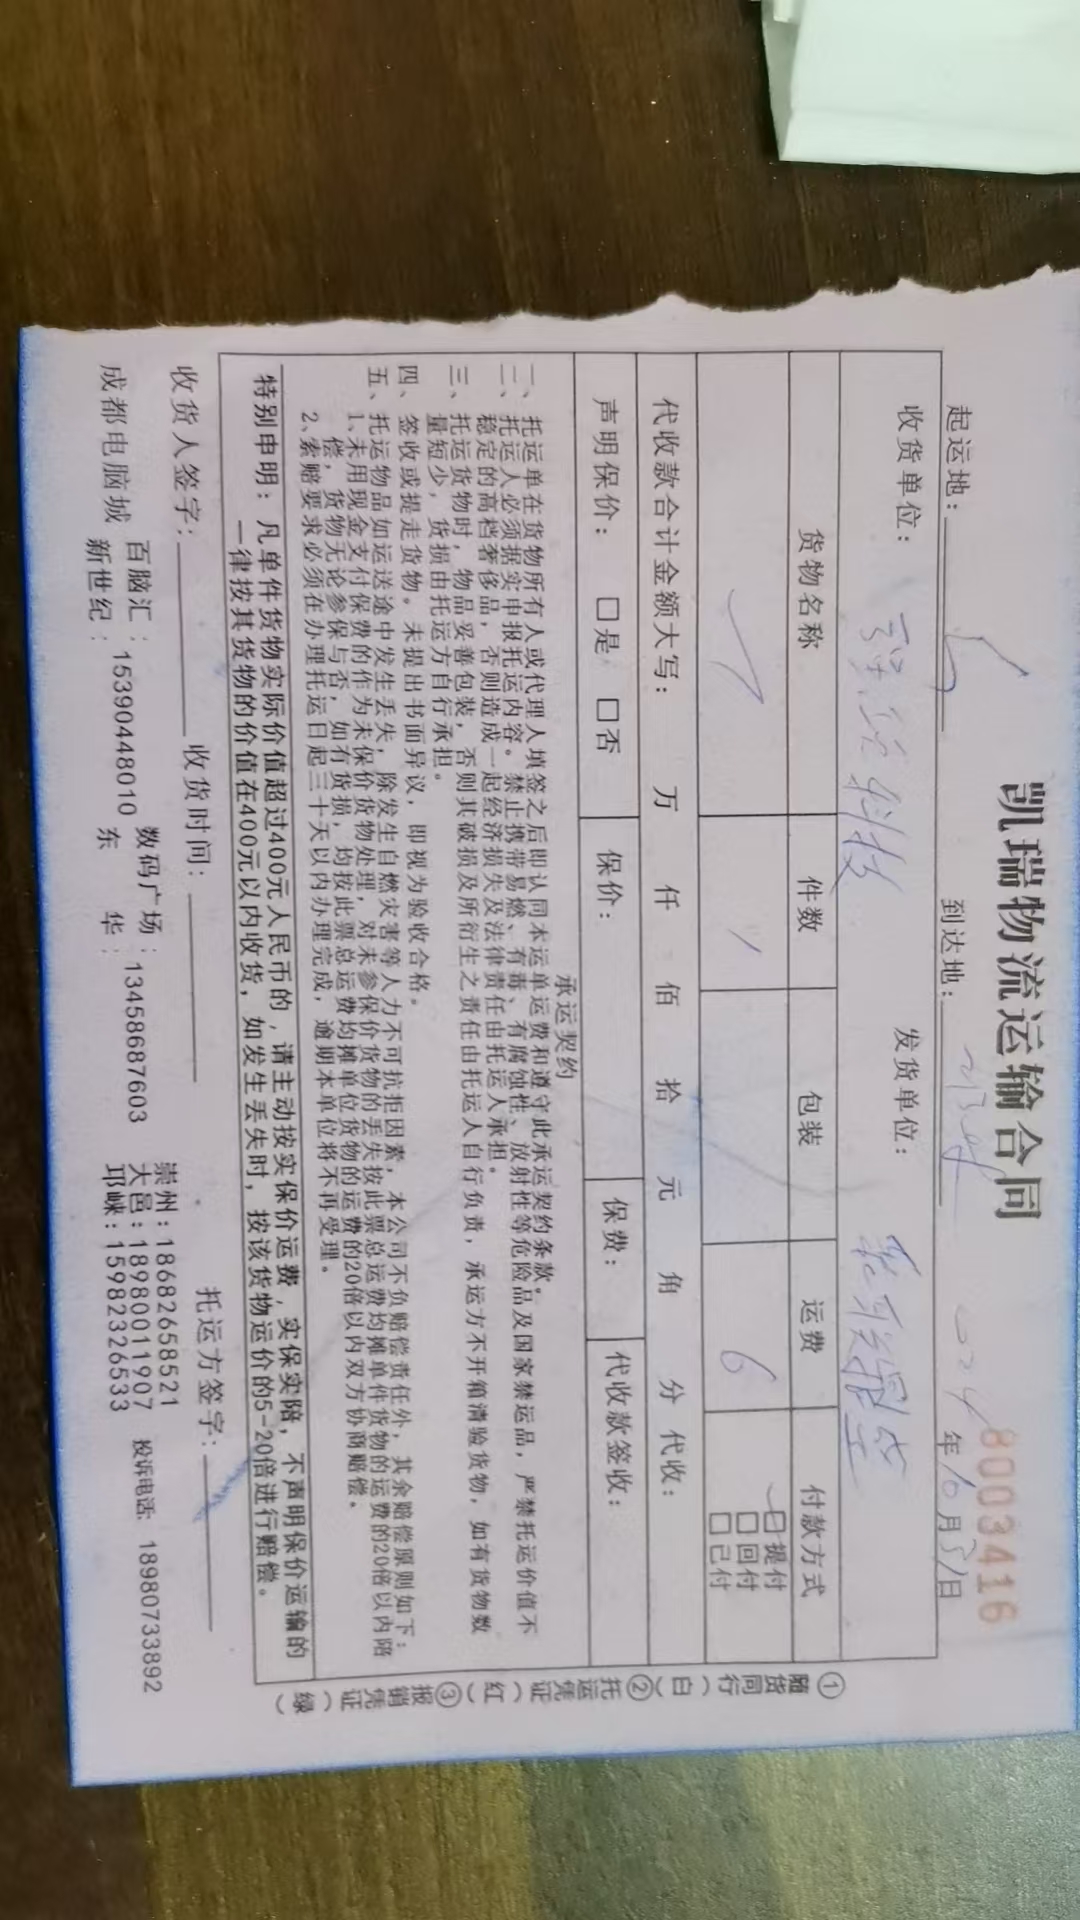 凯瑞物流运输合同
8003416
起运地： 到达地： 年10月31日
收货单位： 发货单位：
货物名称 件数 包装 运费 付款方式
1 6 □提付
□回付
□已付
代收款合计金额大写： 万 仟 佰 拾 元 角 分 代收：
声明保价： □是 □否 保价： 保费： 代收款签收：
承运契约
一、托运单在货物所有人或代理人填签之后即认同本运单运费和遵守此承运契约条款。
二、托运人必须据实申报托运内容。禁止携带易燃、有毒、有腐蚀性、放射性等危险品及国家禁运品，严禁托运价值不
稳定的高档奢侈品，否则造成一起经济损失及法律责任由托运人承担。
三、托运货物时，物品妥善包装，否则其破损及所衍生之责任由托运人自行负责，承运方不开箱清验货物，如有货物数
量短少，货损由托运方自行承担。
四、签收或提走货物。未提出书面异议，即视为验收合格。
五、托运物品如运送途中发生丢失，除发生自燃灾害等人力不可抗拒因素，本公司不负赔偿责任外，其余赔偿原则如下：
1、未用现金支付保费的作为未保价货物处理，对未参保价货物的丢失按此票总运费均摊单件货物的运费的20倍以内陪
偿，货物无论参保与否，如有货损，均按此票总运费均摊单位货物的运费的20倍以内双方协商赔偿。
2、索赔要求必须在办理托运日起三十天以内办理完成，逾期本单位将不再受理。
特别申明：凡单件货物实际价值超过400元人民币的，请主动按实保价运费，实保实陪，不声明保价运输的
一律按其货物的价值在400元以内收货，如发生丢失时，按该货物运价的5-20倍进行赔偿。
收货人签字： 收货时间： 托运方签字：
成都电脑城 百脑汇：15390448010 数码广场：13458687603
新世纪： 东 华：
崇州：18682658521
大邑：18980011907
邛崃：15982326533
投诉电话：18980733892
①随货同行（白）②托运凭证（红）③报销凭证（绿）